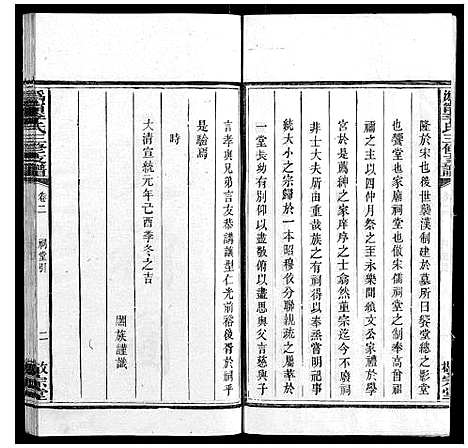 隆於宋也後世襲漢制建於墓所曰祭堂總之影堂
也齋堂也家廟祠堂也倣宋儒祠堂之制奉高曾祖
禰之主以四仲月祭之至永樂間頒文公家禮於學
宮於是薦紳之家庠序之士翕然董宗迄今不廢祠
非士大夫所敢專也重哉族之有祠而豈僅明祀事
統大小之宗歸於一本昭穆攸分聯親疏之屬萃於
一堂長幼有別仰以盡敬俯以盡思與父言慈與子
言孝與兄弟言友恭講讓型仁光前裕後胥於祠乎
是驗焉
時
大清宣統元年己酉季冬之吉
闔族謹識
氏三修支譜
卷二
祠堂引
二
敦宗堂